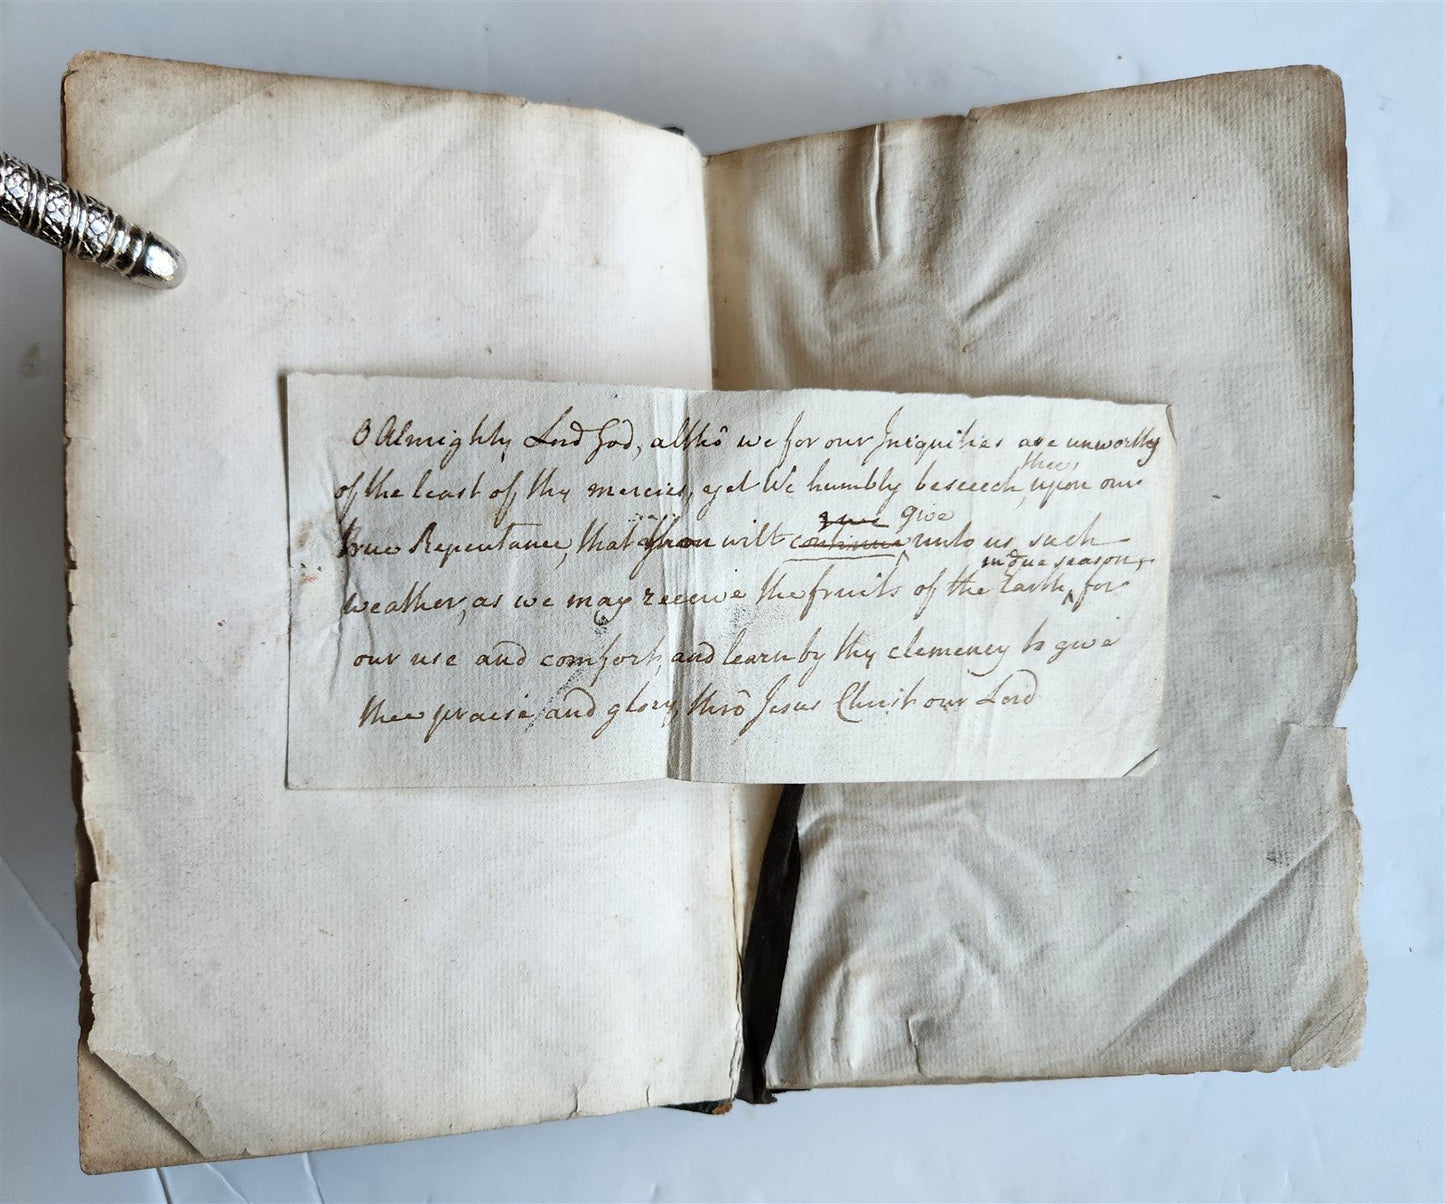 O Almighty Lord God, altho we for our Iniquities are unworthy
of the least of thy mercies, yet We humbly beseech thee, upon our
true Repentance, that thou wilt continue give give unto us such
weather, as we may receive the fruits of the Earth, in due season, for
our use and comfort, and learn by thy clemency to give
thee praise, and glory, thro Jesus Christ our Lord